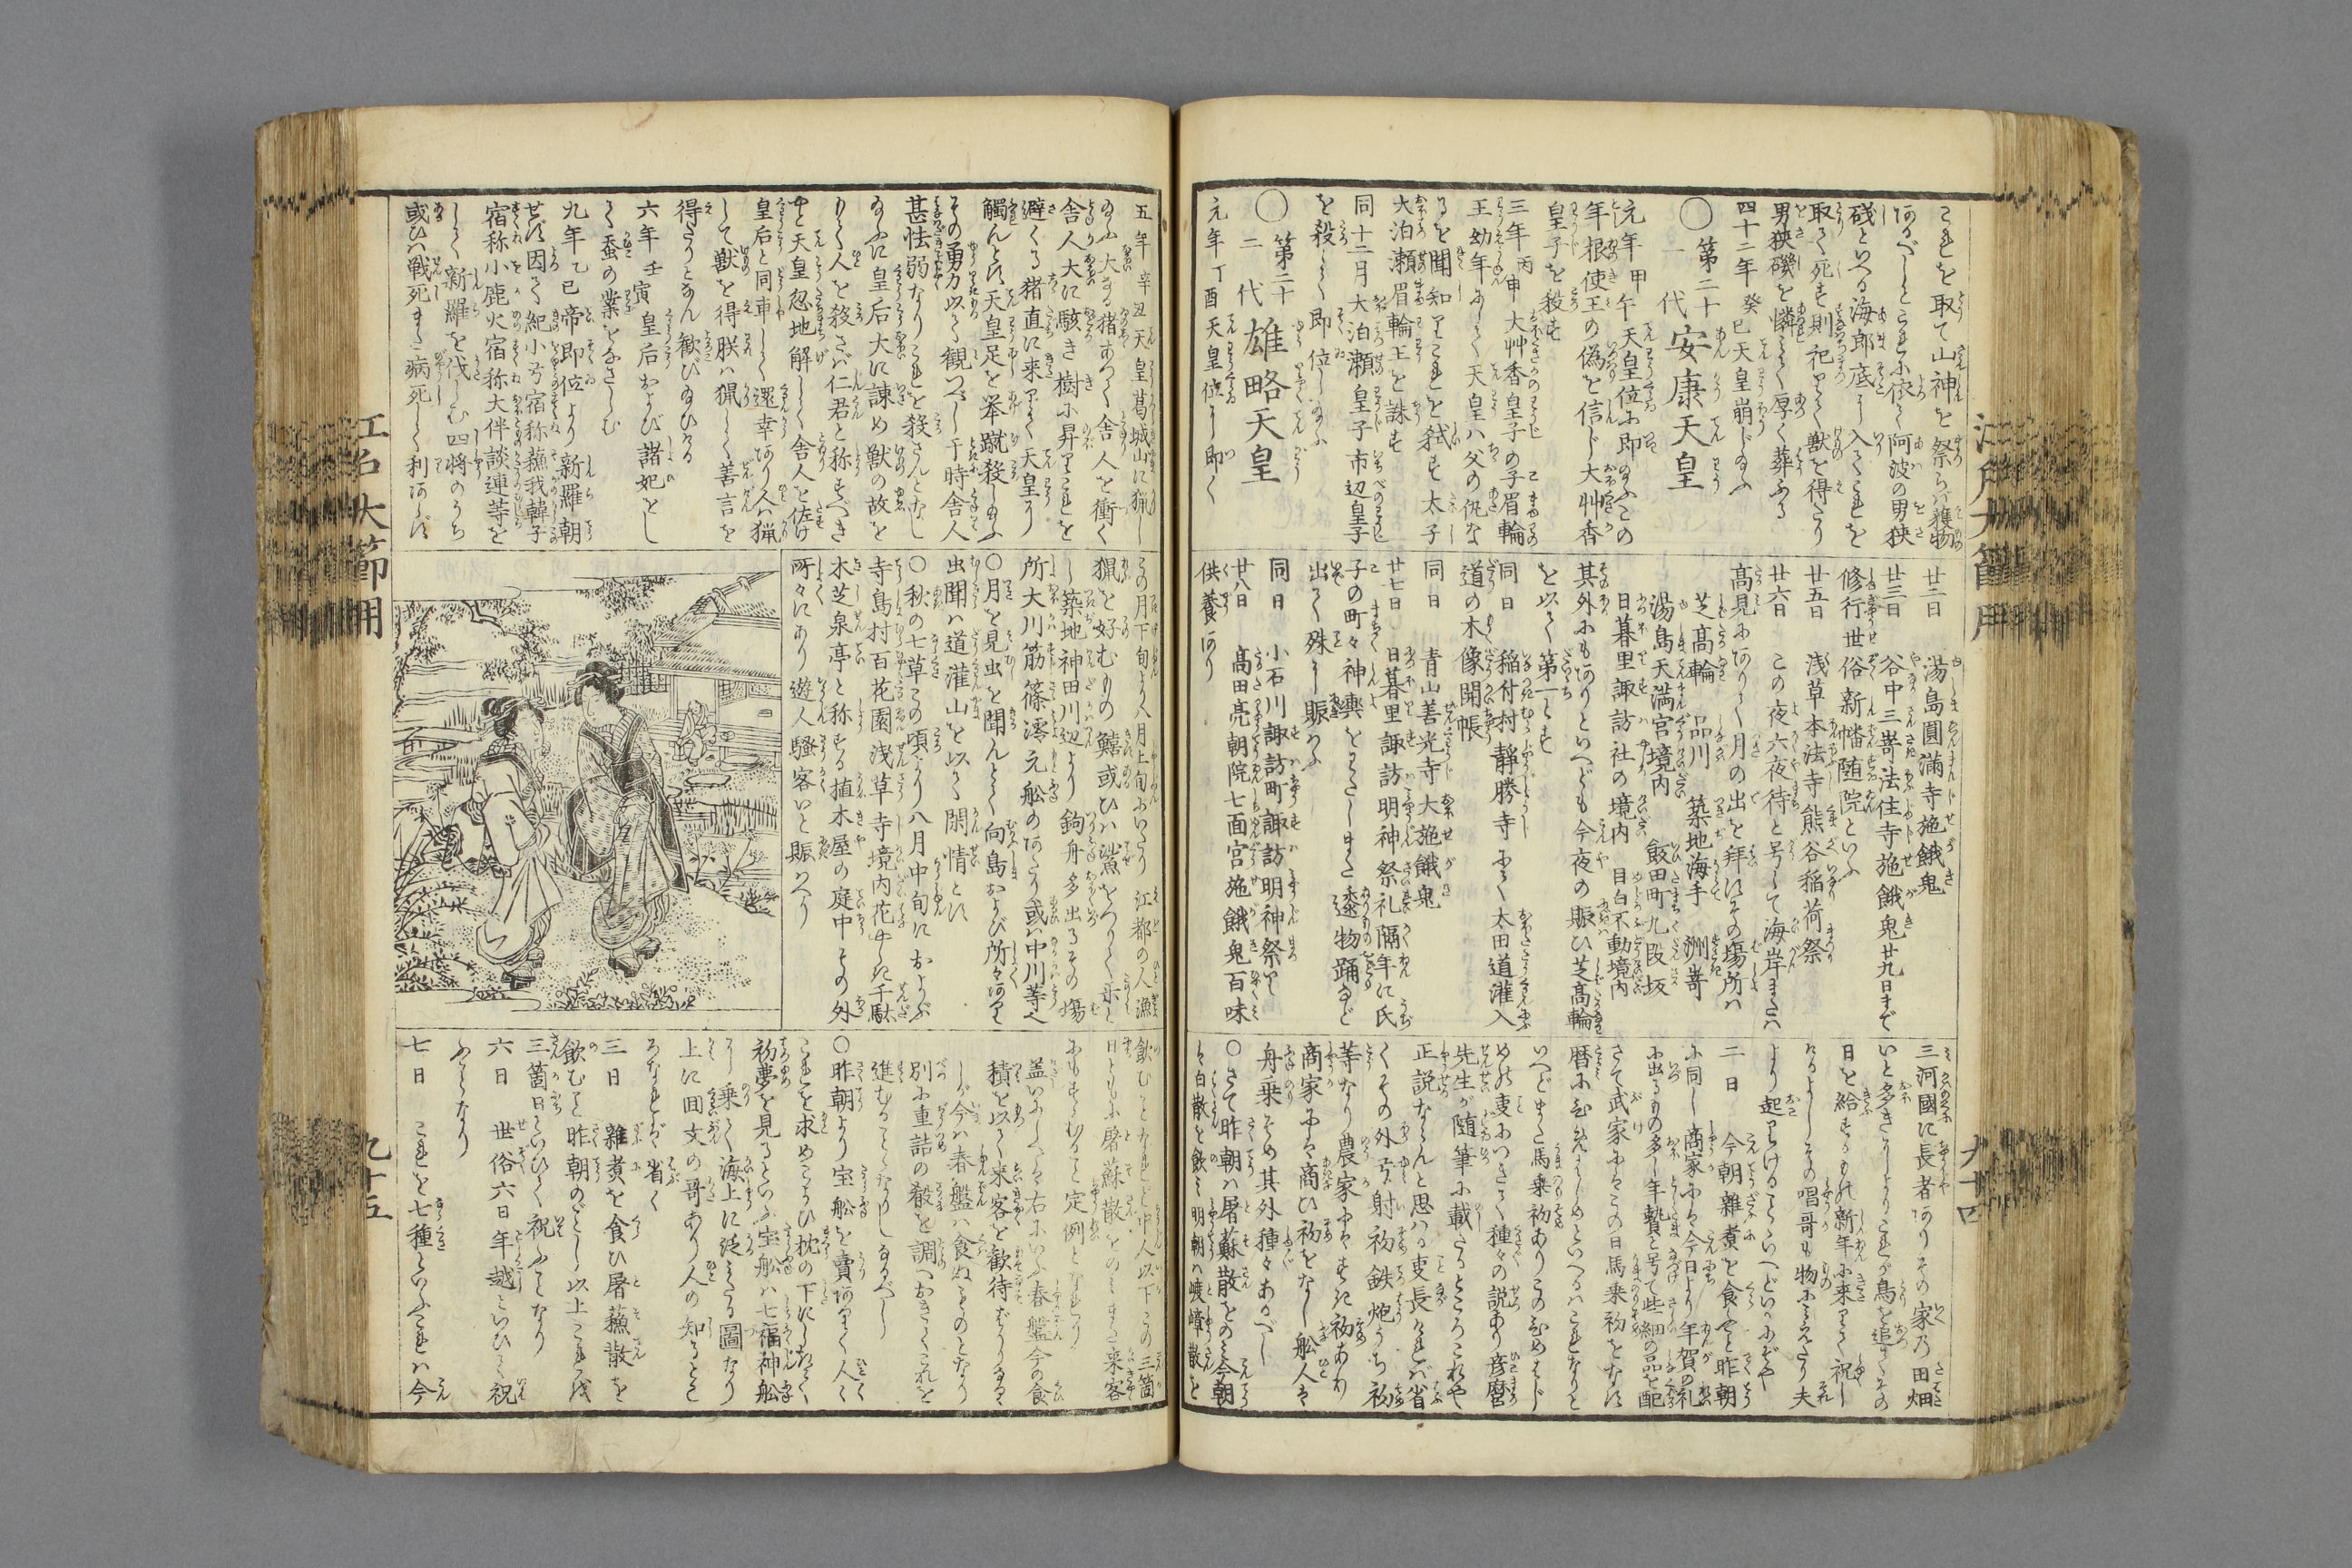 江戸大節用
九十四
これを取て山神を祭らバ獲物
あるべしとこれに依て阿波の男狭
磯といへる海郎底に入てこれを
取て死す則祀りて獣を得たり
男狭磯を憐みて厚く葬ふる
四十二年癸巳天皇崩じ給ふ
○第二十一代安康天皇
元年甲午天皇位に即給ふこの
年根使王の偽を信じ大艸香
皇子を殺す
三年丙申大艸香皇子の子眉輪
王幼年にして天皇ハ父の仇な
るを聞知りこれを弑す太子
大泊瀬眉輪王を誅す
同十二月大泊瀬皇子市辺皇子
を殺して即位し給ふ
○第二十二代雄略天皇
元年丁酉天皇位に即く
廿二日 湯島圓滿寺施餓鬼
廿三日 谷中三嵜法住寺施餓鬼廿九日まで
修行世俗新幡随院といふ
廿五日 浅草本法寺熊谷稲荷祭
廿六日 この夜六夜待と号して海岸または
高見にありて月の出を拝すその場所ハ
芝高輪 品川 築地海手 洲嵜
湯島天満宮境内 飯田町九段坂
日暮里諏訪社の境内 目白不動境内
其外にもありといへども今夜の賑ひ芝高輪
を以て第一とす
同日 稲付村静勝寺にて太田道灌入
道の木像開帳
同日 青山善光寺大施餓鬼
廿七日 日暮里諏訪明神祭礼隔年に氏
子の町々神輿をわたしまた邌物踊など
出て殊に賑はふ
同日 小石川諏訪町諏訪明神祭り
廿八日 高田亮朝院七面宮施餓鬼百味
供養あり
三河國に長者ありその家乃田畑
いと多きによりこれが鳥を追てその
日を給するもの新年に来りて祝し
けるよしその唱哥も物にみえたり夫
より起りけることといへどいかにぞや
二日 今朝雑煮を食すこと昨朝
に同し商家にてハ今日より年賀の礼
に出るもの多し年贄と号て些細の品を配
さて武家にてハこの日馬乗初をなす
暦にひめはじめといへるハこれなりと
いへどまた馬乗初ありこのひめはじ
めの叓につきて種々の説あり彦麿
先生が随筆に載たるところこれや
正説ならんと思ハる叓長ければ省
くその外弓射初鉄炮うち初
等なり農家にてハすき初あり
商家にてハ商ひ初をなし船人ハ
舟乗ぞめ其外種々あるべし
○さて昨朝ハ屠蘇散をのミ今朝
ハ白散を飲ミ明朝ハ嶥嶂散を
五年辛丑天皇葛城山に猟し
給ふ大なる猪ありて舎人を衝く
舎人大に駭き樹に昇りこれを
避くる猪直に来りて天皇に
觸んとす天皇足を挙蹴殺し給ふ
その勇力以て觀つべし于時舎人
甚怯弱なりこれを殺さんとなし
給ふに皇后大に諌め獣の故を
もて人を殺さバ仁君と称すべき
やと天皇忽地解して舎人を佐け
皇后と同車して還幸あり人ハ猟
して獣を得朕ハ猟して善言を
得たりとなん歓び給ひける
六年壬寅皇后および諸妃をし
て蚕の業をなさしむ
九年乙巳帝即位より新羅朝
せず因て紀小弓宿称蘓我韓子
宿称小鹿火宿称大伴談連等を
して新羅を伐しむ四将のうち
或ひハ戦死また病死して利あらず
この月下旬より八月上旬にいたり江都の人漁
猟を好むもの鱚或ひハ鯊をつりて楽と
し築地神田川辺より鉤舟多出るその場
所大川筋篠澪元舩のあたり或ハ中川等へ
○月を見虫を聞んとて向島および所々あり
虫聞ハ道灌山を以て閑情とす
○秋の七草この頃より八月中旬におよぶ
寺島村百花園浅草寺境内花やしき千駄
木芝泉亭と称する植木屋の庭中その外
所々にあり遊人騒客いと賑はへり
飲むことなれど中人以下この三箇
日ともに屠蘇散をのミまた来客
にもすすむること定例となれり
盖いにしへハ右にいふ春盤今の食
積を以て来客を歓待ばかりなる
しが今ハ春盤ハ食ぬものとなり
別に重詰の殽を調へおきてこれを
進むることとなりしなるべし
○昨朝より宝舩を賣ありく人々
これを求めこよひ枕の下にしきて
初夢を見るといふ宝舩ハ七福神舩
に乗て海上に泛ミたる圖なり
上に回文の哥あり人の知るとこ
ろなれば省く
三日 雜煮を食ひ屠蘓散を
飲むこと昨朝のごとし以上これを
三箇日といひて祝ふことなり
六日 世俗六日年越といひて祝
ふことなり
七日 これを七種といふこれハ今
江戸大節用
九十五